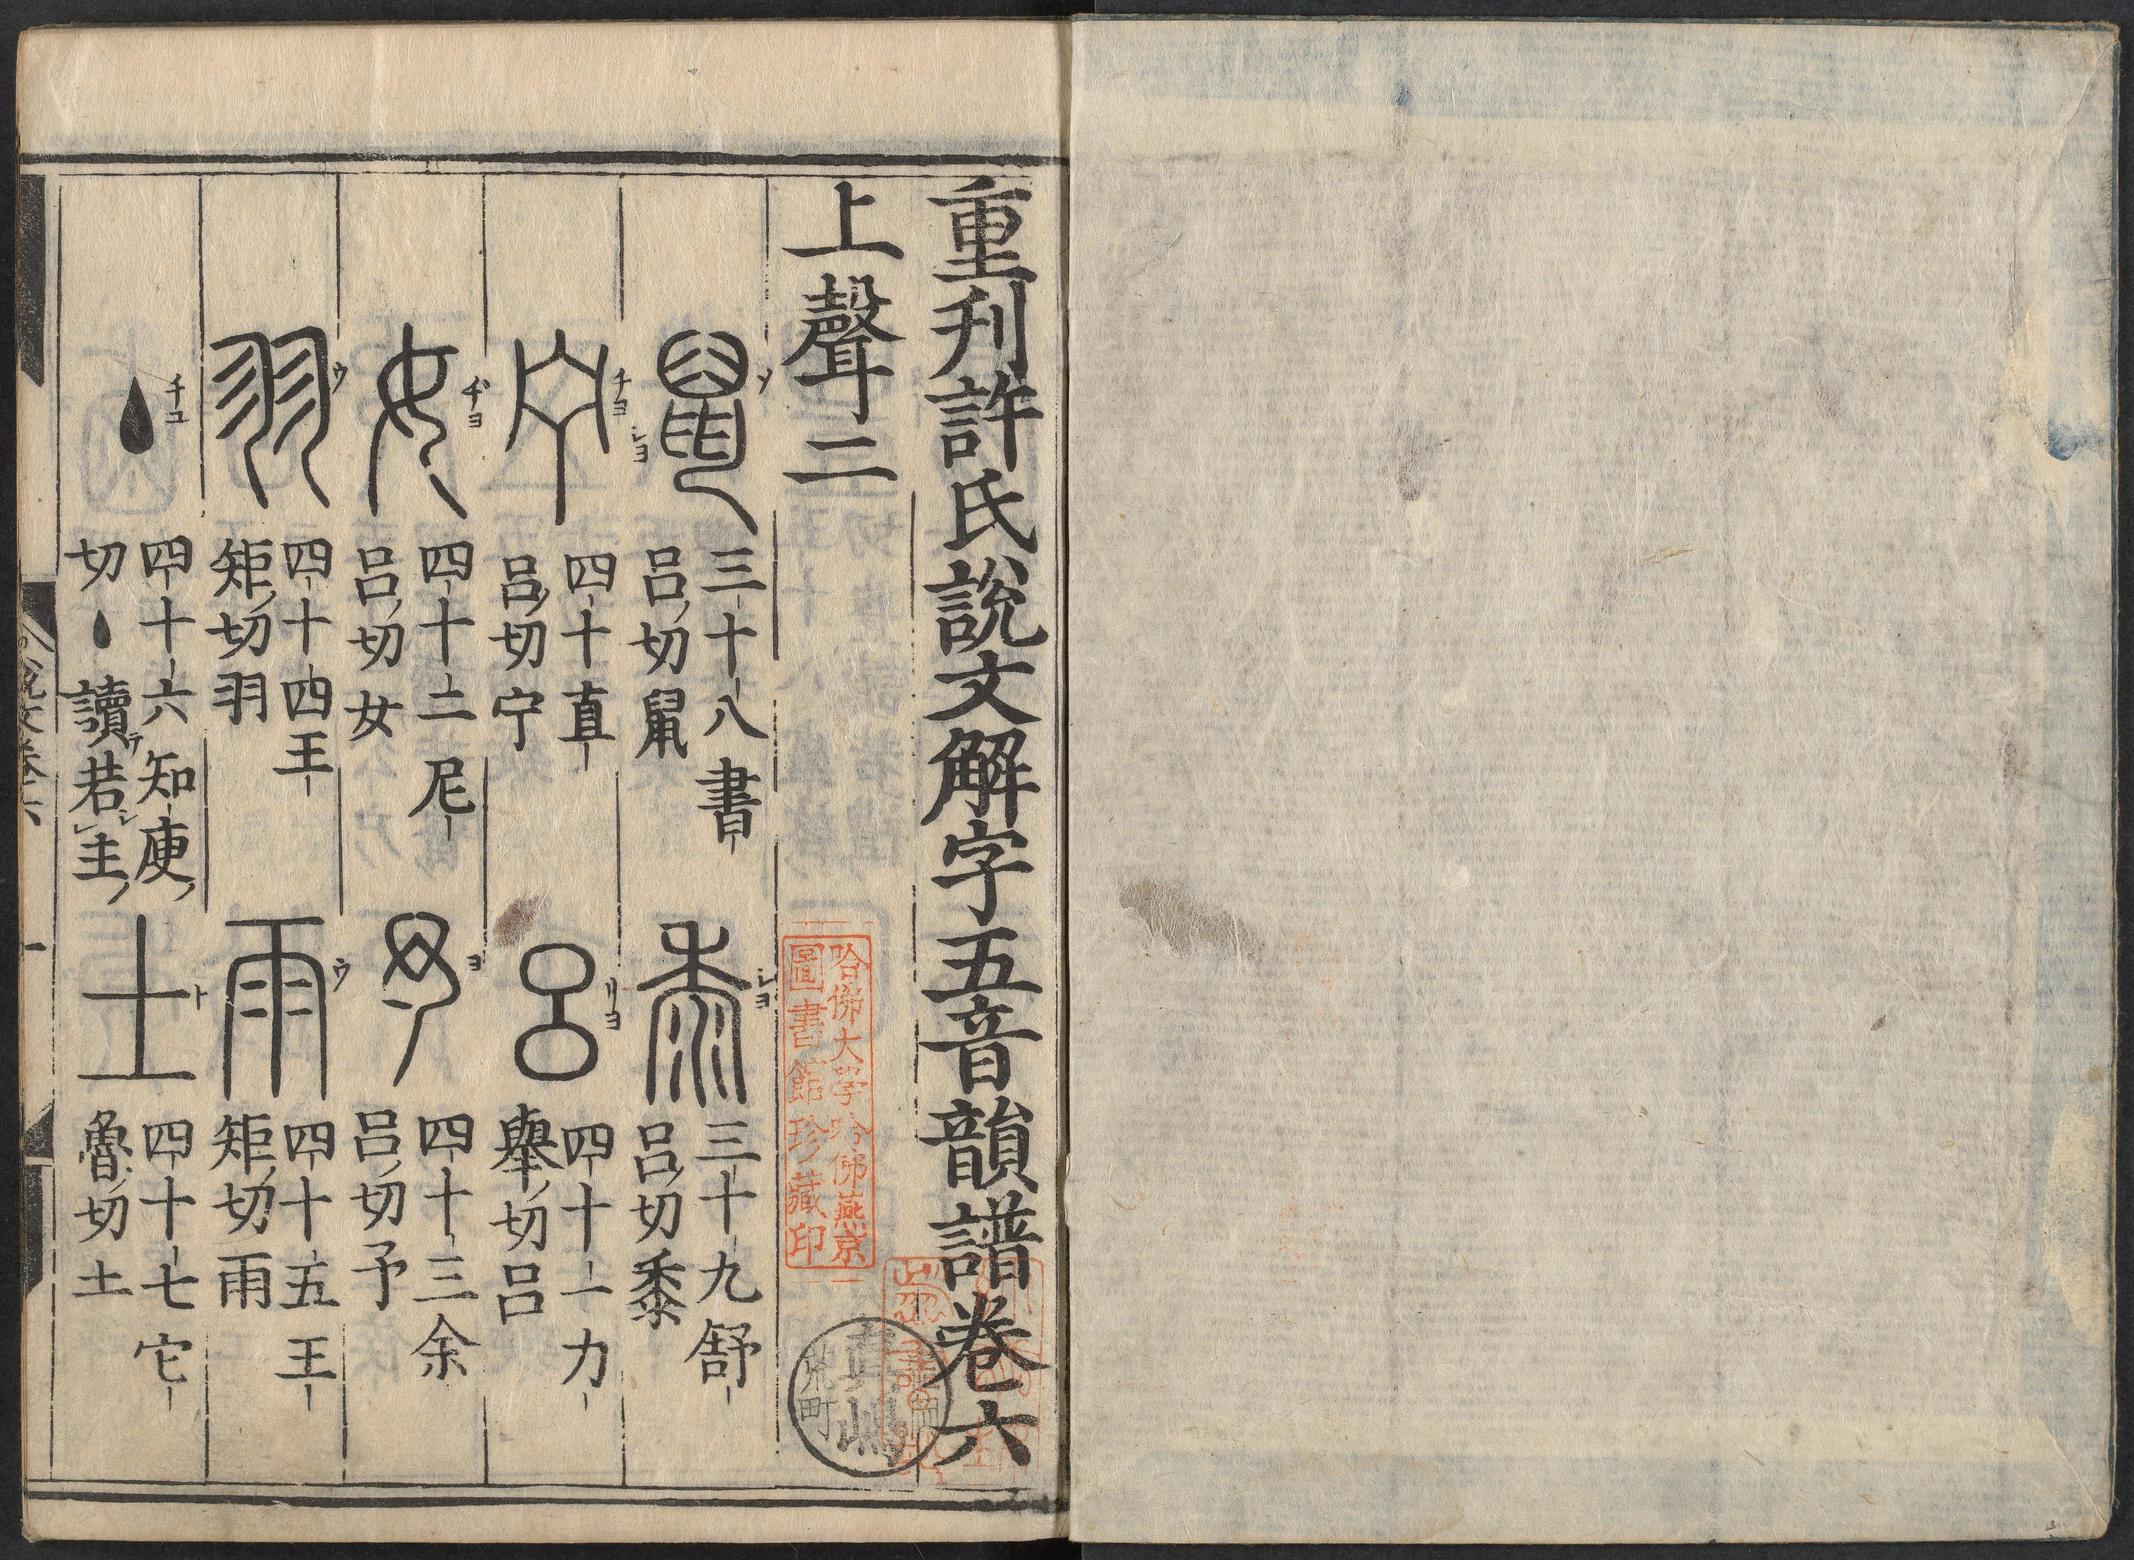 重刊許氏說文解字五音韻譜卷六
上聲二
鼠 三十八書呂切鼠
黍 三十九舒呂切黍
宁 四十直呂切宁
呂 四十一力舉切呂
女 四十二尼呂切女
予 四十三余呂切予
羽 四十四王矩切羽
雨 四十五王矩切雨
丶 四十六知庾切丶讀若主
土 四十七它魯切土
哈佛大學哈佛燕京
圖書館珍藏印
說文卷六
一